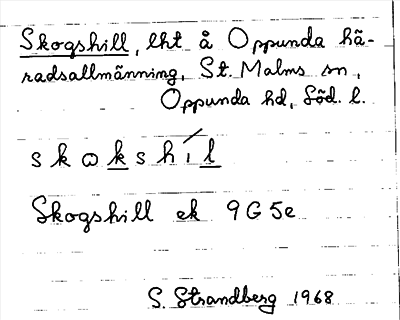 Skogshill, lht å Oppunda hä-
radsallmänning, St. Malms sn,
Oppunda hd, Söd. l.
s k ɷ k s h í l
Skogshill ek 9G5e
S. Strandberg 1968